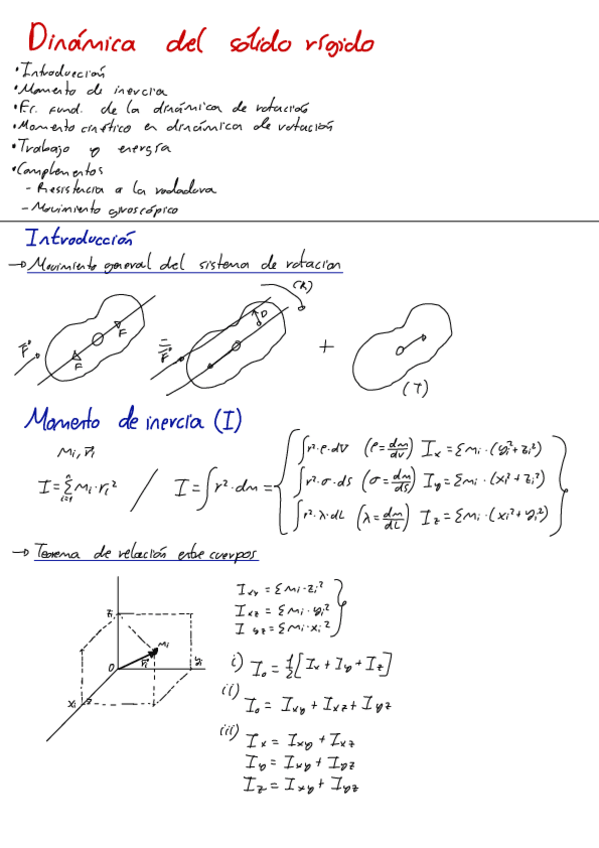 Dinámica del sólido rígido
• Introducción
• Momento de inercia
• Ec. fund. de la dinámica de rotación
• Momento cinético en dinámica de rotación
• Trabajo y energía
• Complementos
- Resistencia a la rodadura
- Movimiento giroscópico
Introducción
→ Movimiento general del sistema de rotacion
(R)
F F F = F D + (T)
Momento de inercia (I)
mi, ri
I = Σ mi·ri² / I = ∫r²·dm =
∫r²·ρ·dV (ρ = dm/dV) Ix = Σmi·(yi²+zi²)
∫r²·σ·dS (σ = dm/dS) Iy = Σmi·(xi²+zi²)
∫r²·λ·dL (λ = dm/dL) Iz = Σmi·(xi²+yi²)
→ Teorema de relación entre cuerpos
Ixy = Σmi·zi²
Ixz = Σmi·yi²
Iyz = Σmi·xi²
zi mi ri O yi xi
i) Io = 1/2[Ix + Iy + Iz]
ii) Io = Ixy + Ixz + Iyz
iii) Ix = Ixy + Ixz
Iy = Ixy + Iyz
Iz = Ixy + Iyz